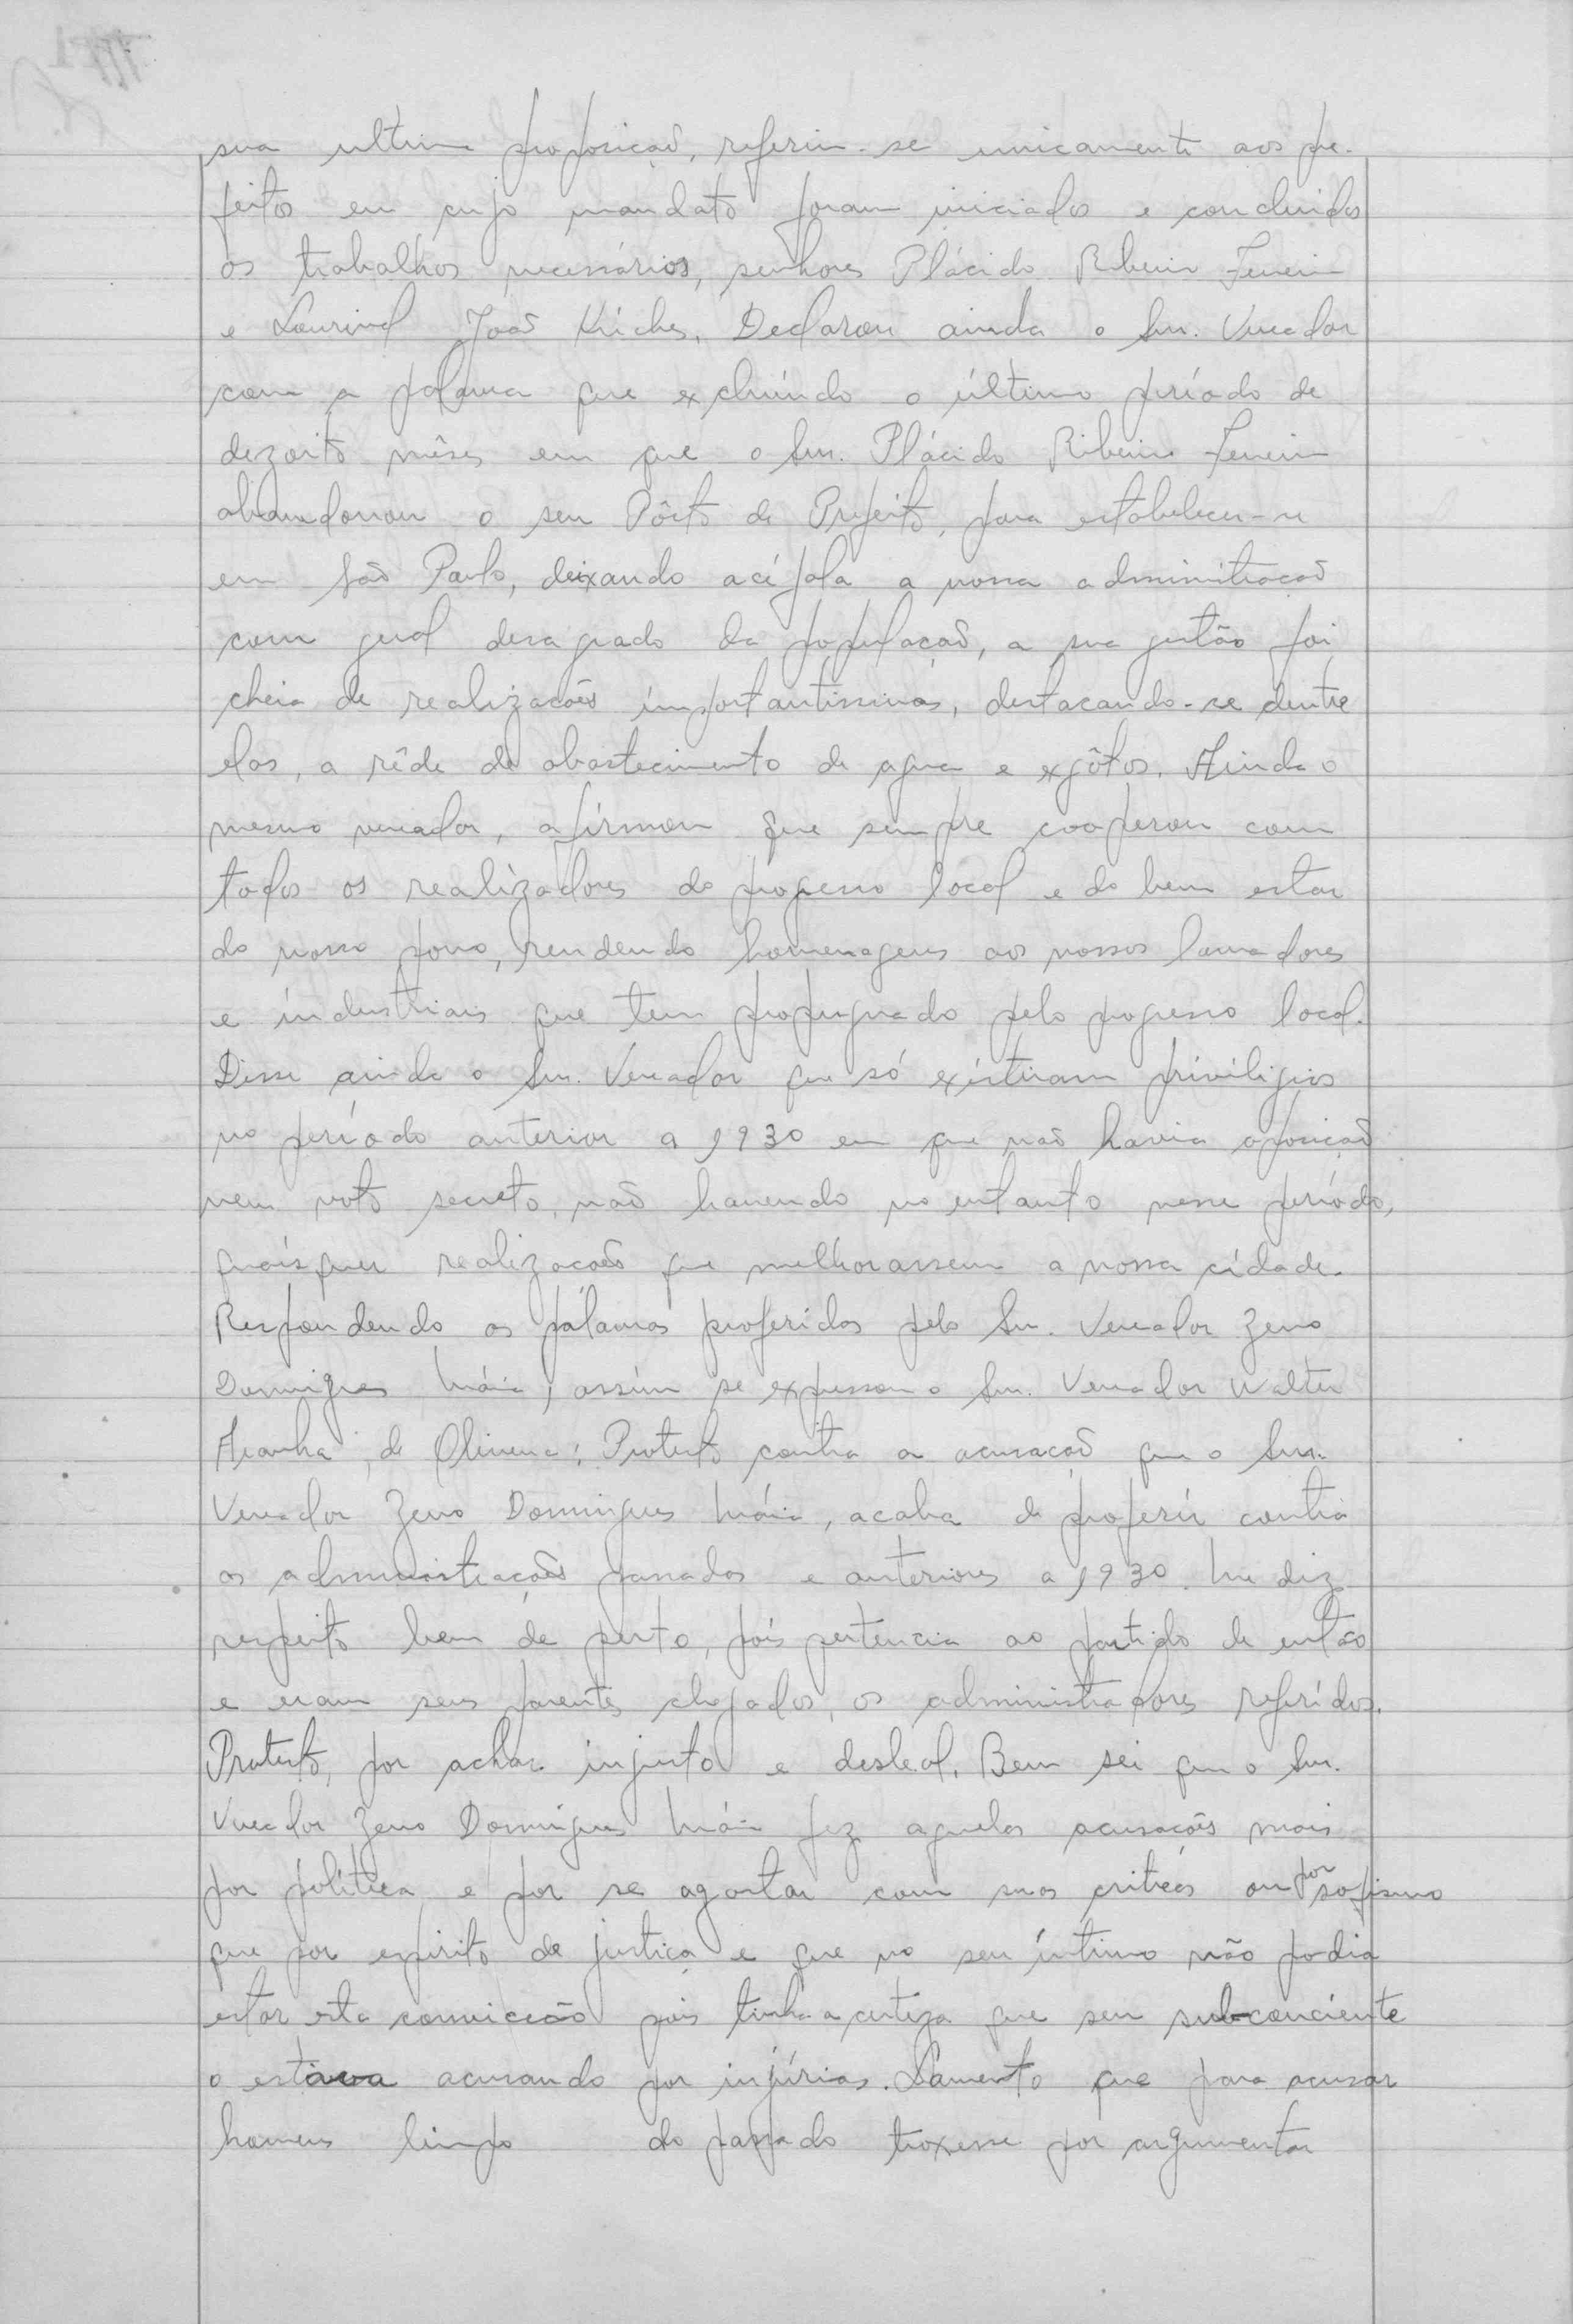 sua ultima proposicaõ, referiu-se unicamente aos pre-
feitos em cujo mandato foram iniciados e concluidos
os trabalhos necessários, senhores Plácido Ribeiro Ferreira
e Lourival João Kriches. Declarou ainda o Snr. Vereador
com a palavra que excluíndo o último período de
dezoito mêses em que o Snr. Plácido Ribeiro Ferreira
abandonou o seu Pôsto de Prefeito, para estabelecer-se
em Saõ Paulo, deixando acéfala a nossa administracaõ
com geral desagrado da populacaõ, a sua gestão foi
cheia de realizacoẽs importantissimas, destacando-se dentre
elas, a rêde de abastecimento de agua e exgôtos. Ainda o
mesmo vereador, afirmou que sempre cooperou com
todos os realizadores do progresso local e do bem estar
do nosso povo, rendendo homenagens aos nossos lavradores
e industriais que tem propugnado pelo progresso local.
Disse ainda o Snr. Vereador que só existiram priviligios
no período anterior a 1930 em que naõ havia oposicaõ
nem voto secreto, naõ havendo no entanto nesse período,
quaisquer realizacoẽs que melhorassem a nossa cidade.
Respondendo as palavras proferidas pelo Snr. Vereador Zeno
Domingues Maia, assim se expressou o Snr. Vereador Walter
Aranha de Oliveira: Protesto contra a acusacaõ que o Snr.
Vereador Zeno Domingues Maia, acaba de proferir contra
as administracoẽs passadas e anteriores a 1930. Me diz
respeito bem de perto, pois pertencia ao partido de então
e eram seus parentes chegados, os administradores referidos.
Protesto, por achar injusto e desleal. Bem sei que o Snr.
Vereador Zeno Domingues Maia fez aquelas acusacoẽs mais
por política e por se agastar com suas criticas ou por sofismo
que por espirito de justiça e que no seu íntimo não podia
estar esta conviccão pois tinha a certeza que seu sub-conciente
o estava acusando por injúrias. Lamento que para acusar
homens limpo do passado troxesse por argumentar